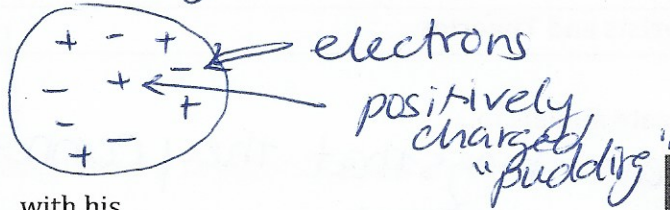 + - +
electrons
-
- +
+
positively
charged
"pudding"
-
-
+
with his